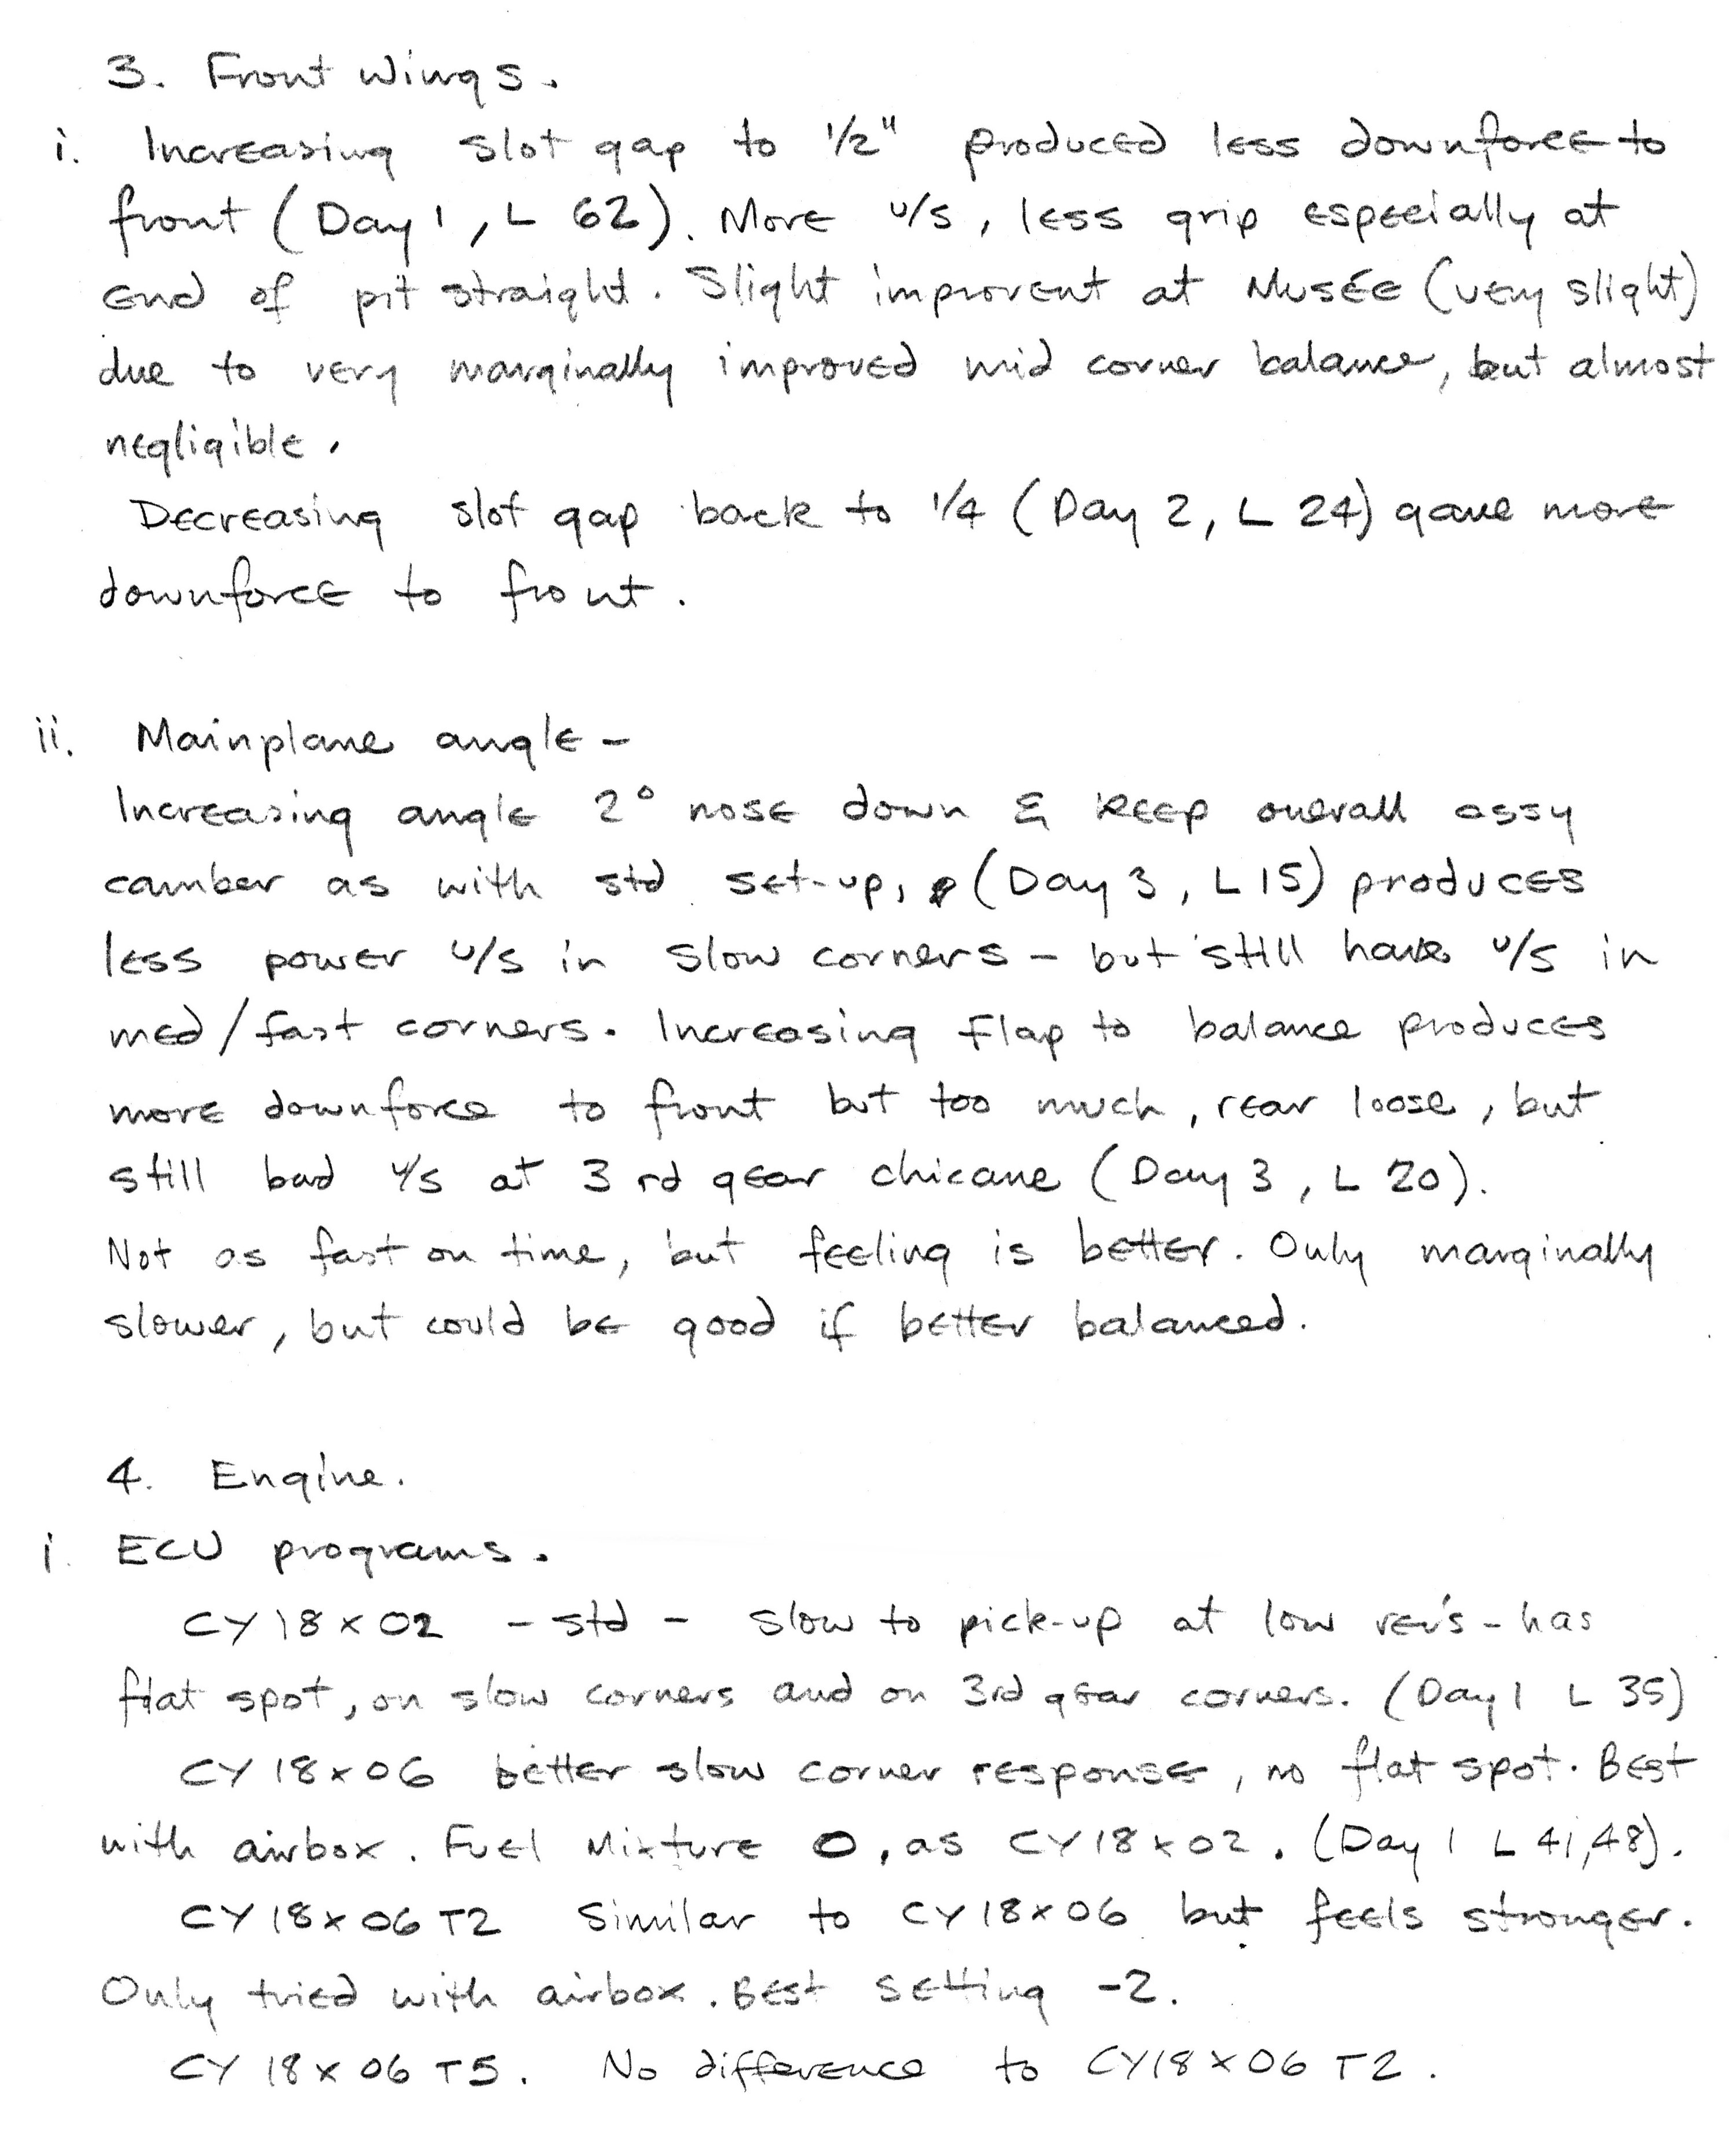 3. Front Wings.
i. Increasing slot gap to 1/2" produced less downforce to
front (Day 1, L 62). More u/s, less grip especially at
end of pit straight. Slight improvent at Musée (very slight)
due to very marginally improved mid corner balance, but almost
negligible.
Decreasing slot gap back to 1/4 (Day 2, L 24) gave more
downforce to front.
ii. Mainplane angle -
Increasing angle 2° nose down & keep overall assy
camber as with std set-up, (Day 3, L 15) produces
less power u/s in slow corners - but still have u/s in
med/fast corners. Increasing flap to balance produces
more downforce to front but too much, rear loose, but
still bad u/s at 3rd gear chicane (Day 3, L 20).
Not as fast on time, but feeling is better. Only marginally
slower, but could be good if better balanced.
4. Engine.
i. ECU programs.
CY18x02 - std - slow to pick-up at low rev's - has
flat spot, on slow corners and on 3rd gear corners. (Day 1 L 35)
CY18x06 better slow corner response, no flat spot. Best
with airbox. Fuel Mixture 0, as CY18x02. (Day 1 L 41,48).
CY18x06 T2 Similar to CY18x06 but feels stronger.
Only tried with airbox. Best setting -2.
CY18x06 T5. No difference to CY18x06 T2.